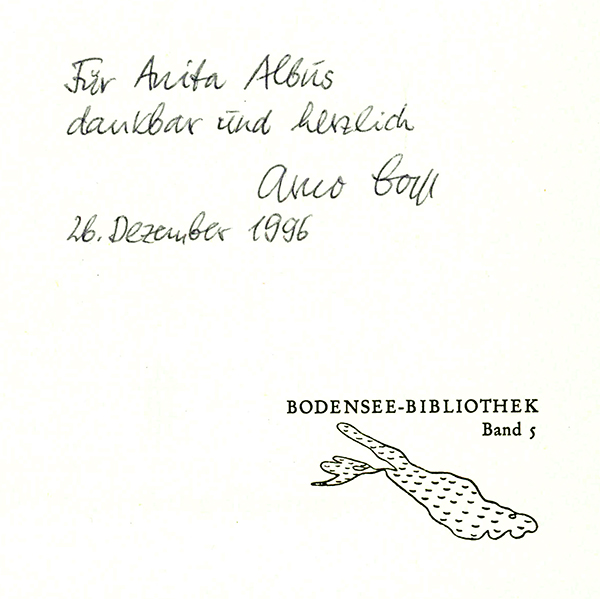 Für Anita Albus
dankbar und herzlich
Arno Borst
26. Dezember 1996
BODENSEE-BIBLIOTHEK
Band 5